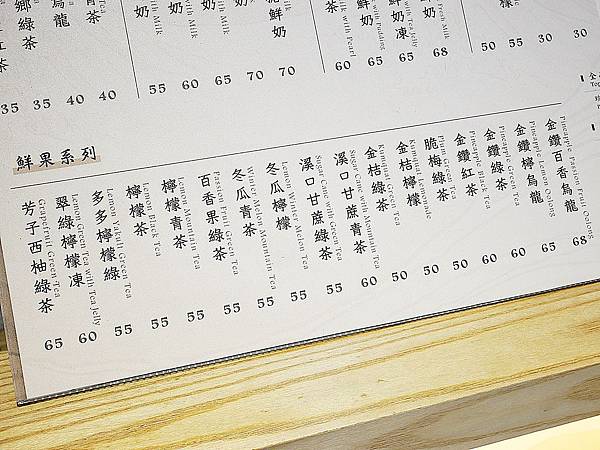 鄉綠茶
烏龍
青茶
35
35
40
40
奶
with Milk
奶
Milk
鮮奶
55
60
65
70
70
Milk with Pearl
鮮奶
with Pudding
鮮奶凍
with Tea Jelly
奶
Fresh Milk
檬
60
65
65
68
50
55
30
30
鮮果系列
芳子西柚綠茶
Grapefruit Green Tea
65
翠綠檸檬凍
Lemon Green Tea with Tea Jelly
60
多多檸檬綠
Lemon Yakult Green Tea
55
檸檬茶
Lemon Black Tea
55
檸檬青茶
Lemon Mountain Tea
55
百香果綠茶
Passion Fruit Green Tea
55
冬瓜青茶
Winter Melon Mountain Tea
55
冬瓜檸檬
Lemon Winter Melon Tea
55
溪口甘蔗綠茶
Sugar Cane with Green Tea
55
溪口甘蔗青茶
Sugar Cane with Mountain Tea
60
金桔綠茶
Kumquat Green Tea
50
金桔檸檬
Kumquat Lemonade
50
脆梅綠茶
Plum Green Tea
50
金鑽紅茶
Pineapple Black Tea
60
金鑽綠茶
Pineapple Green Tea
60
金鑽檸烏龍
Pineapple Lemon Oolong
65
金鑽百香烏龍
Pineapple Passion Fruit Oolong
68